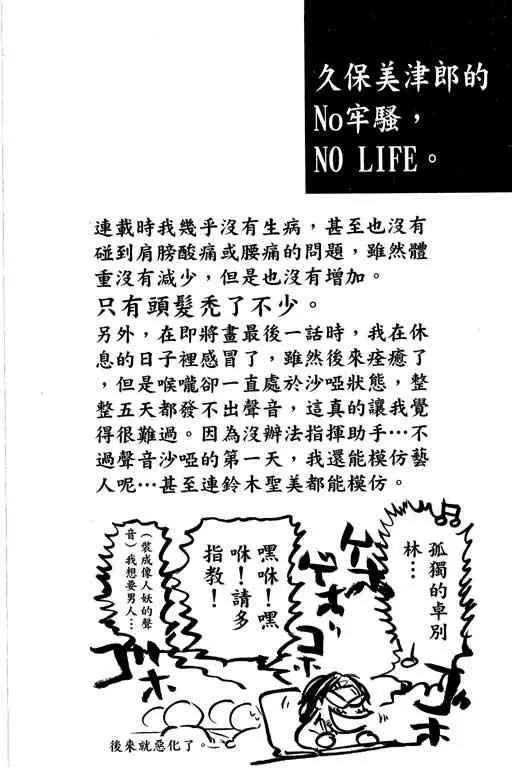 久保美津郎的
No牢騷，
NO LIFE。
連載時我幾乎沒有生病，甚至也沒有
碰到肩膀酸痛或腰痛的問題，雖然體
重沒有減少，但是也沒有增加。
只有頭髮禿了不少。
另外，在即將畫最後一話時，我在休
息的日子裡感冒了，雖然後來痊癒了
，但是喉嚨卻一直處於沙啞狀態，整
整五天都發不出聲音，這真的讓我覺
得很難過。因為沒辦法指揮助手…不
過聲音沙啞的第一天，我還能模仿藝
人呢…甚至連鈴木聖美都能模仿。
孤獨的卓別
林…
嘿咻！嘿
咻！請多
指教！
（裝成像人妖的聲
音）我想要男人…
ゲホ
ゲホ
ゴホ
後來就惡化了。